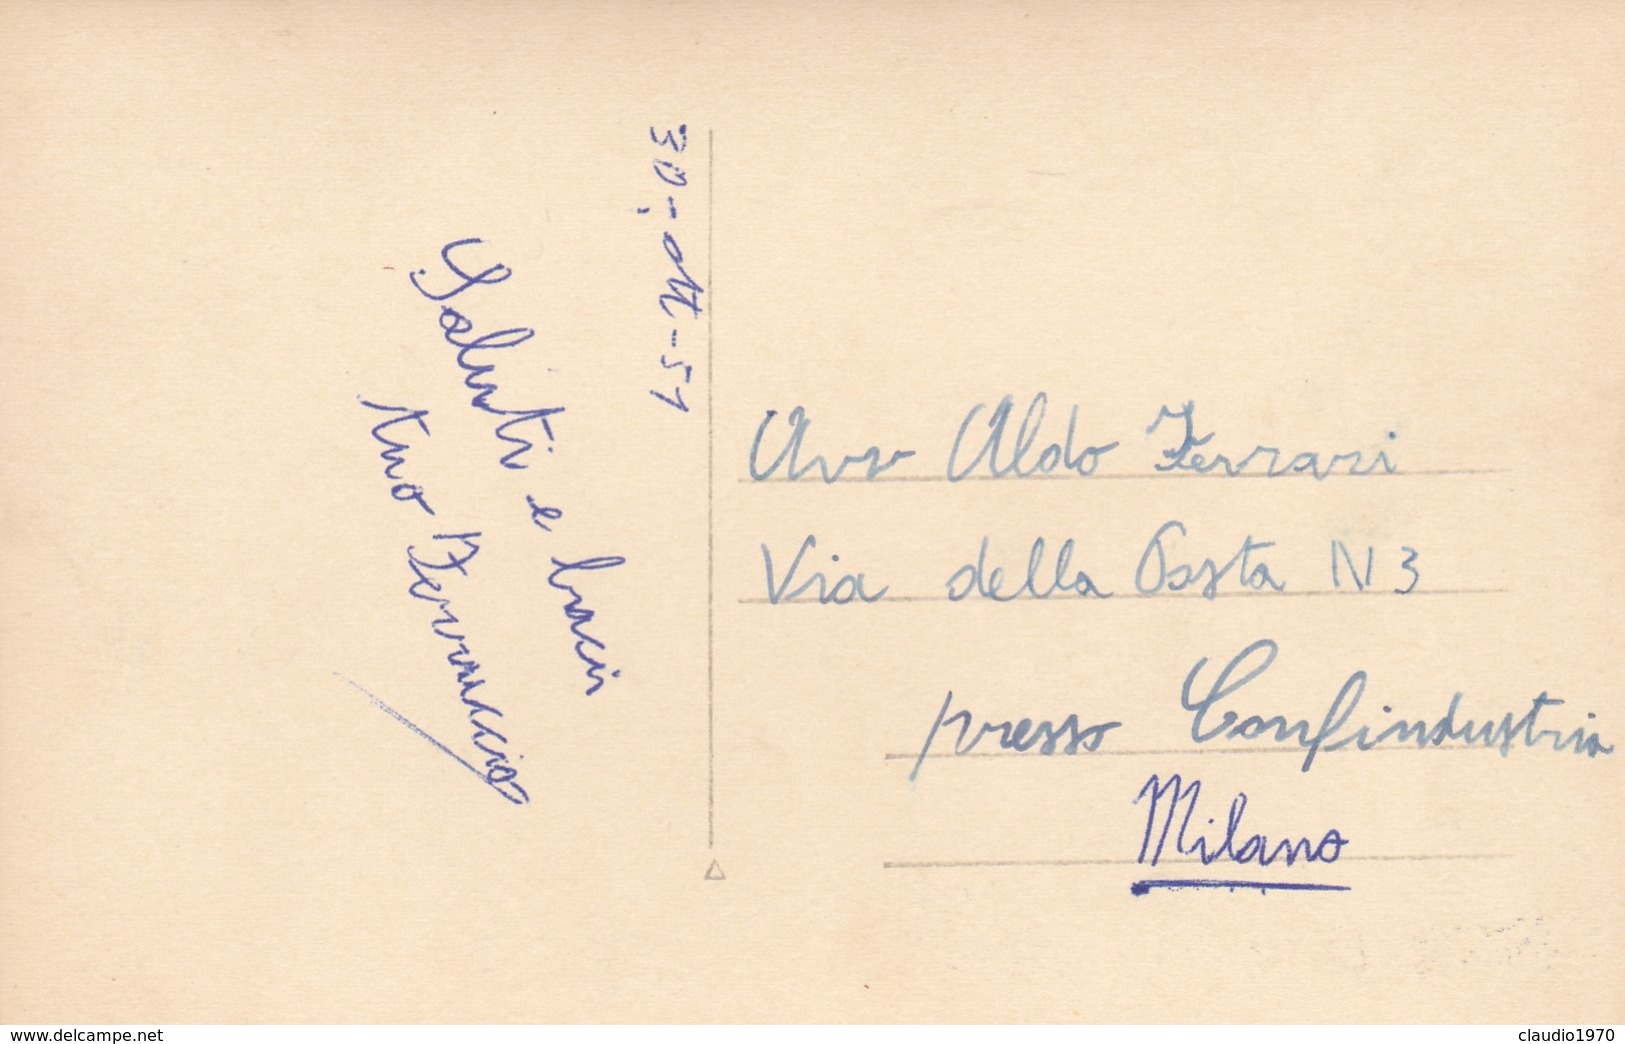 30, - ott - 51
Saluti e baci
tuo Ferruccio
Avv Aldo Ferrari
Via della Posta N 3
presso Confindustria
Milano
www.delcampe.net
claudio1970